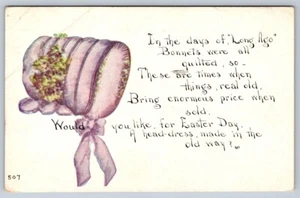 In the days of "Long Ago"
Bonnets were all
quilted, so-
These are times when
things, real old,
Bring enormous price when
sold.
Would you like, for Easter Day,
A head-dress, made in the
old way?
507